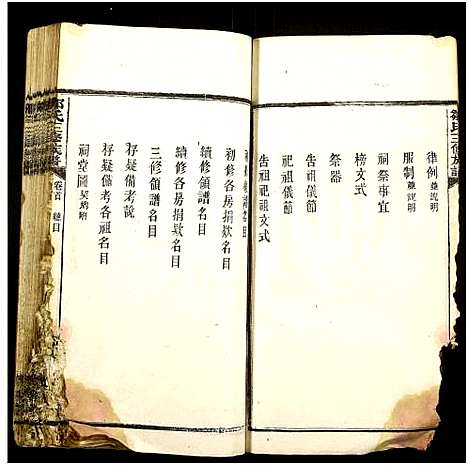 鄒氏三修族譜
律例 兼說明
服制 兼說明
祠祭事宜
榜文式
祭器
告祖儀節
祀祖儀節
告祖祀祖文式
初修領譜名目
初修各房捐欵名目
續修領譜名目
續修各房捐欵名目
三修領譜名目
存疑備考說
存疑備考各祖名目
祠堂圖 契約明
鄒氏三修族譜
卷首 總目